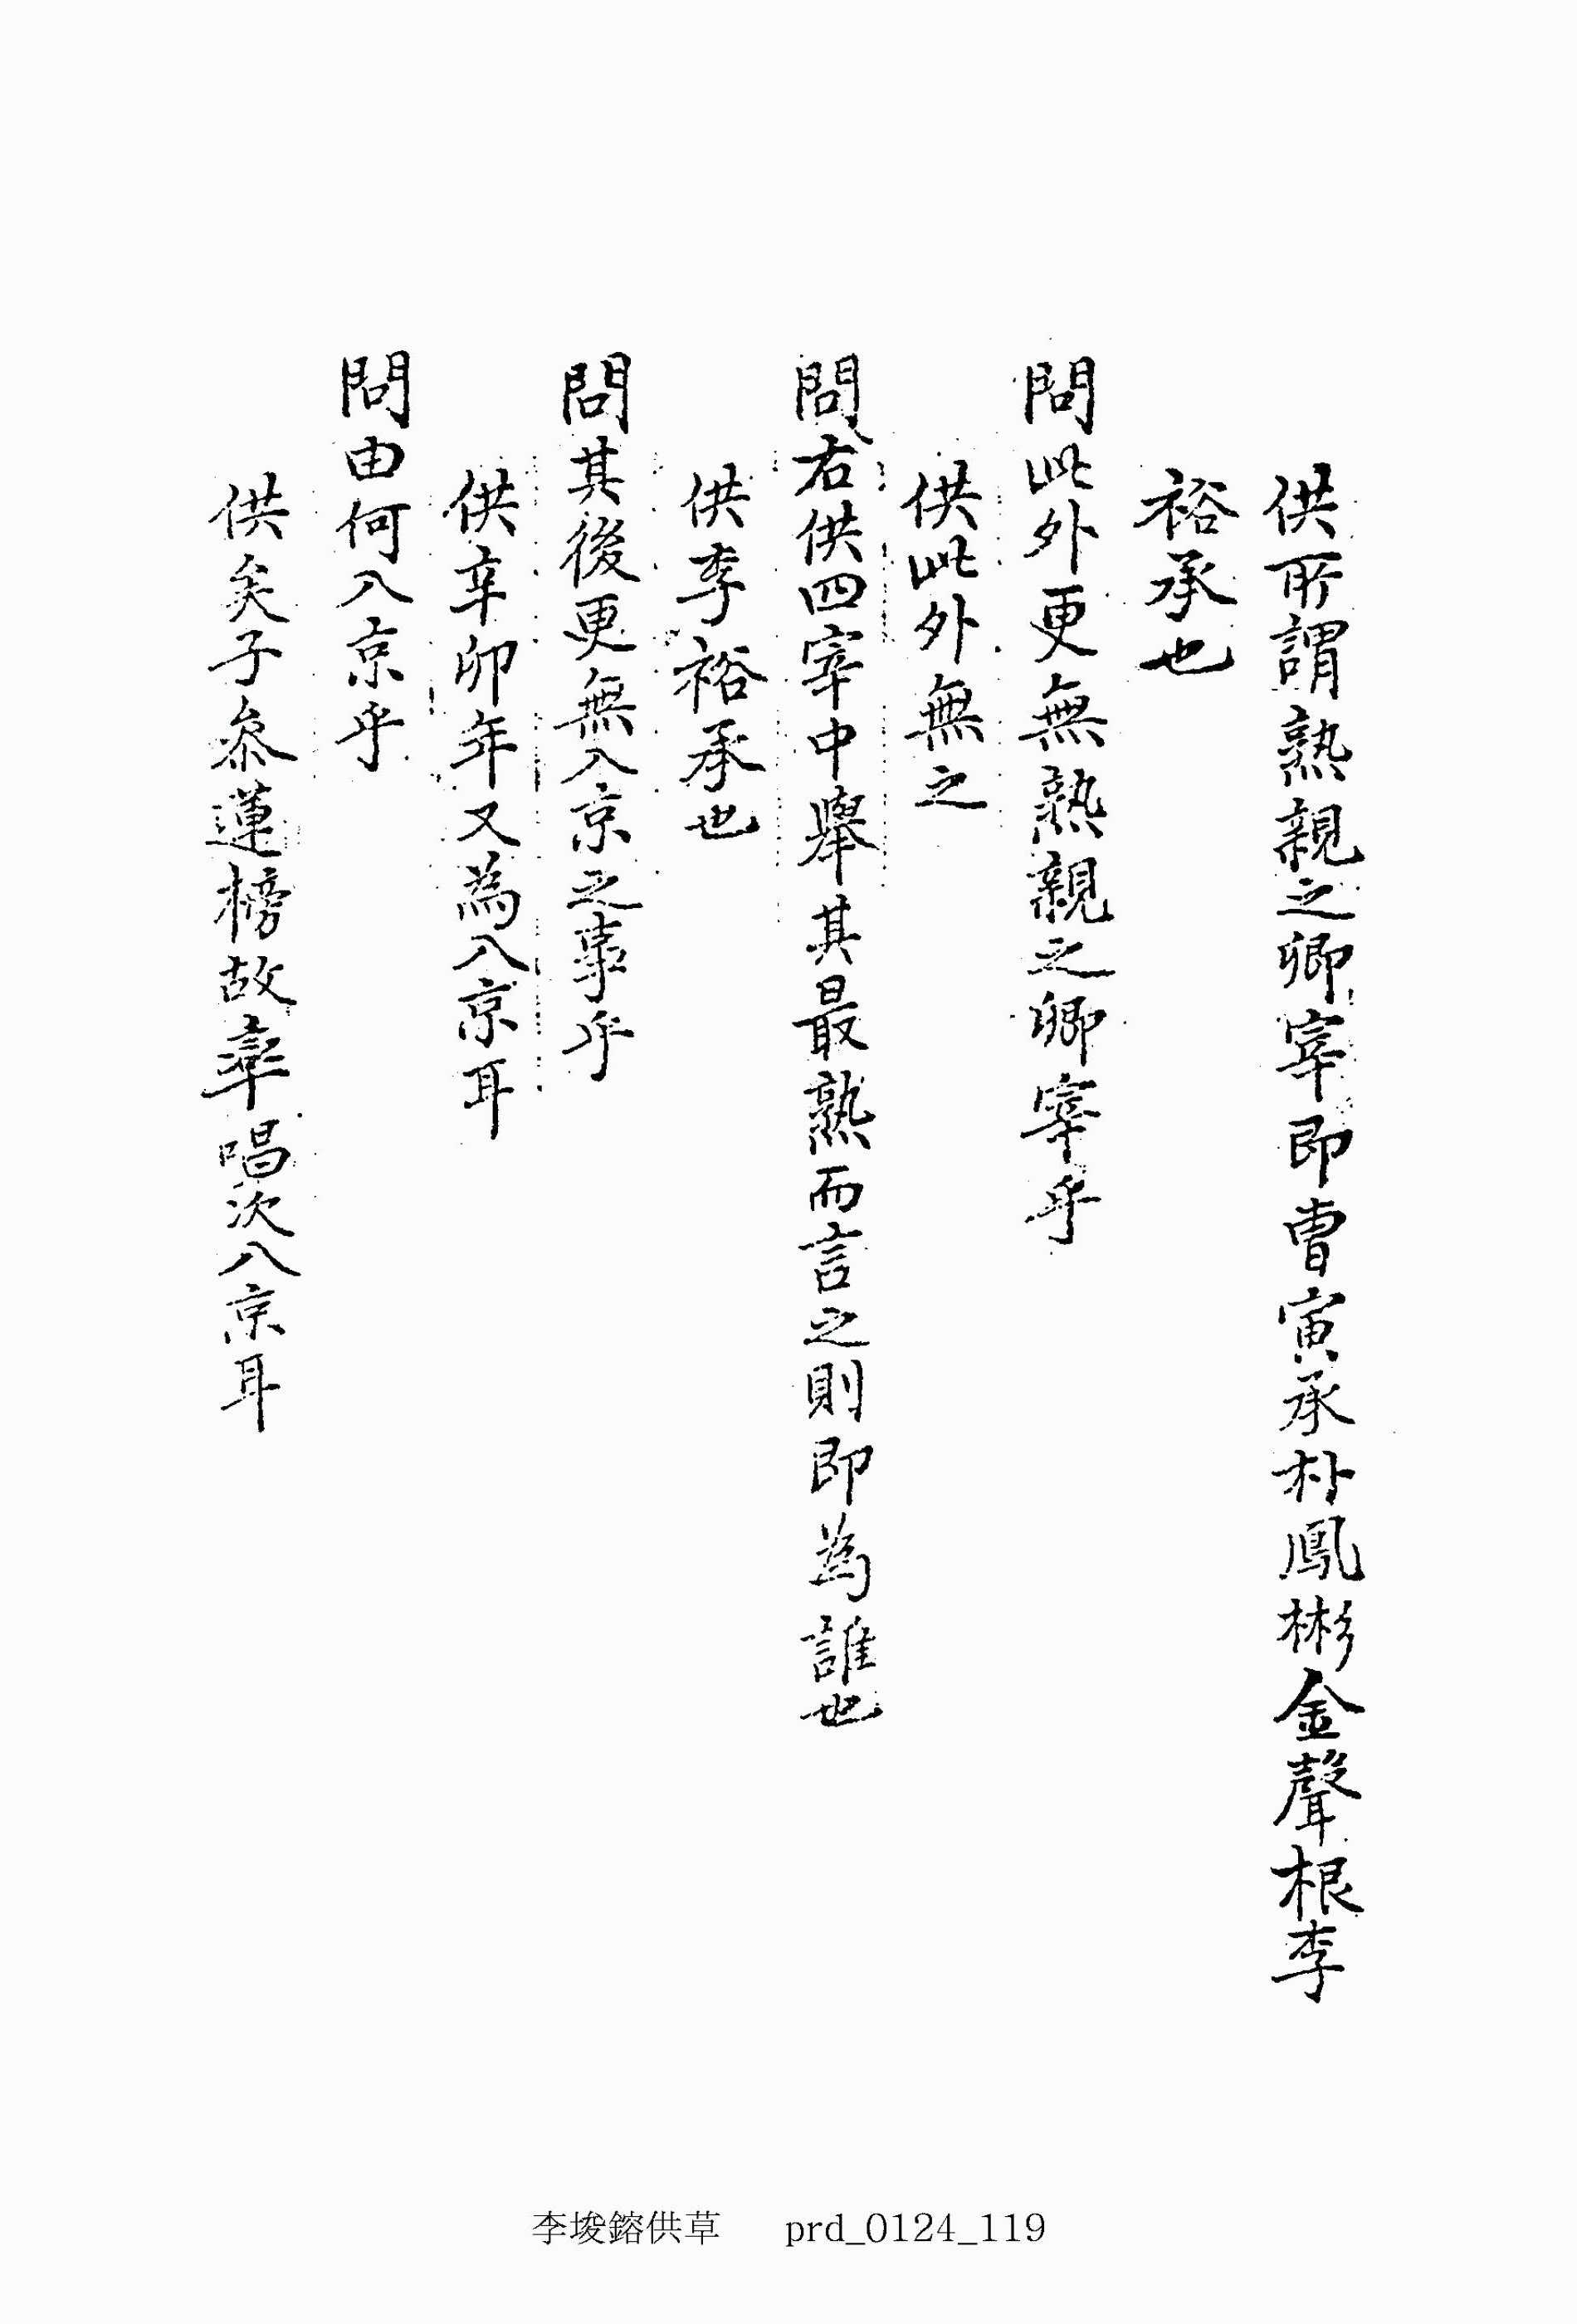 供所謂熟親之卿宰即曺寅承朴鳳彬金聲根李
裕承也
問此外更無熟親之卿宰乎
供此外無之
問右供四宰中擧其最熟而言之則即為誰也
供李裕承也
問其後更無入京之事乎
供辛卯年又為入京耳
問由何入京乎
供矣子叅蓮榜故率唱次入京耳
李埈鎔供草 prd_0124_119